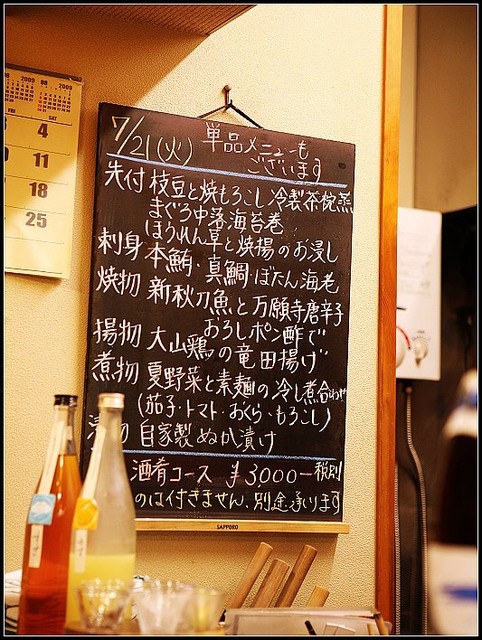 7/21(火) 単品メニューも
ございます
先付 枝豆と焼もろこし 冷製茶椀蒸
まぐろ中落海苔巻
ほうれん草と焼揚のお浸し
刺身 本鮪・真鯛・ぼたん海老
焼物 新秋刀魚と万願寺唐辛子
おろしポン酢で
揚物 大山鶏の竜田揚げ
煮物 夏野菜と素麺の冷し煮合わせ
(茄子・トマト・おくら・もろこし)
物 自家製ぬか漬け
酒肴コース ¥3,000- 税別
のは付きません。別途承ります
SAPPORO
2009
2009
FRI
SAT
4
11
18
25